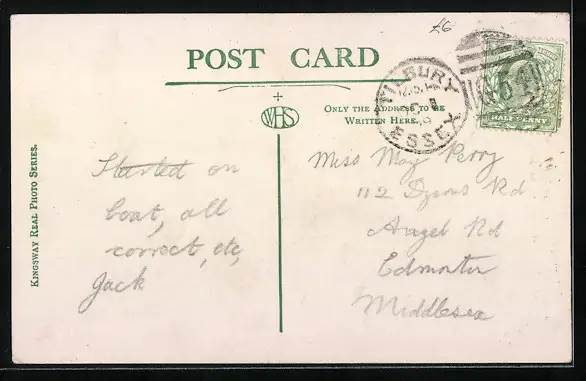 £6
POST CARD
TILBURY
ESSEX
HALFPENNY
WHS
ONLY THE ADDRESS TO BE
WRITTEN HERE.
KINGSWAY REAL PHOTO SERIES.
Started on
boat, all
correct, etc,
Jack
Miss May Perry
112 Dysons Rd
Angel Rd
Edmonton
Middlesex